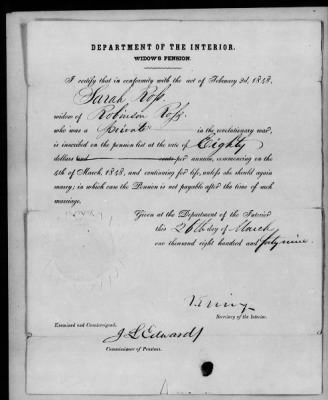 DEPARTMENT OF THE INTERIOR.
WIDOW'S PENSION.
I certify that in conformity with the act of February 2d, 1848,
Sarah Ross
widow of Robinson Ross
who was a private in the revolutionary war,
is inscribed on the pension list at the rate of Eighty
dollars and cents per annum, commencing on the
4th of March, 1848, and continuing for life, unless she should again
marry; in which case the Pension is not payable after the time of such
marriage.
Given at the Department of the Interior
this 26th day of March
one thousand eight hundred and forty nine
Secretary of the Interior.
Examined and Countersigned,
J L Edwards
Commissioner of Pensions.